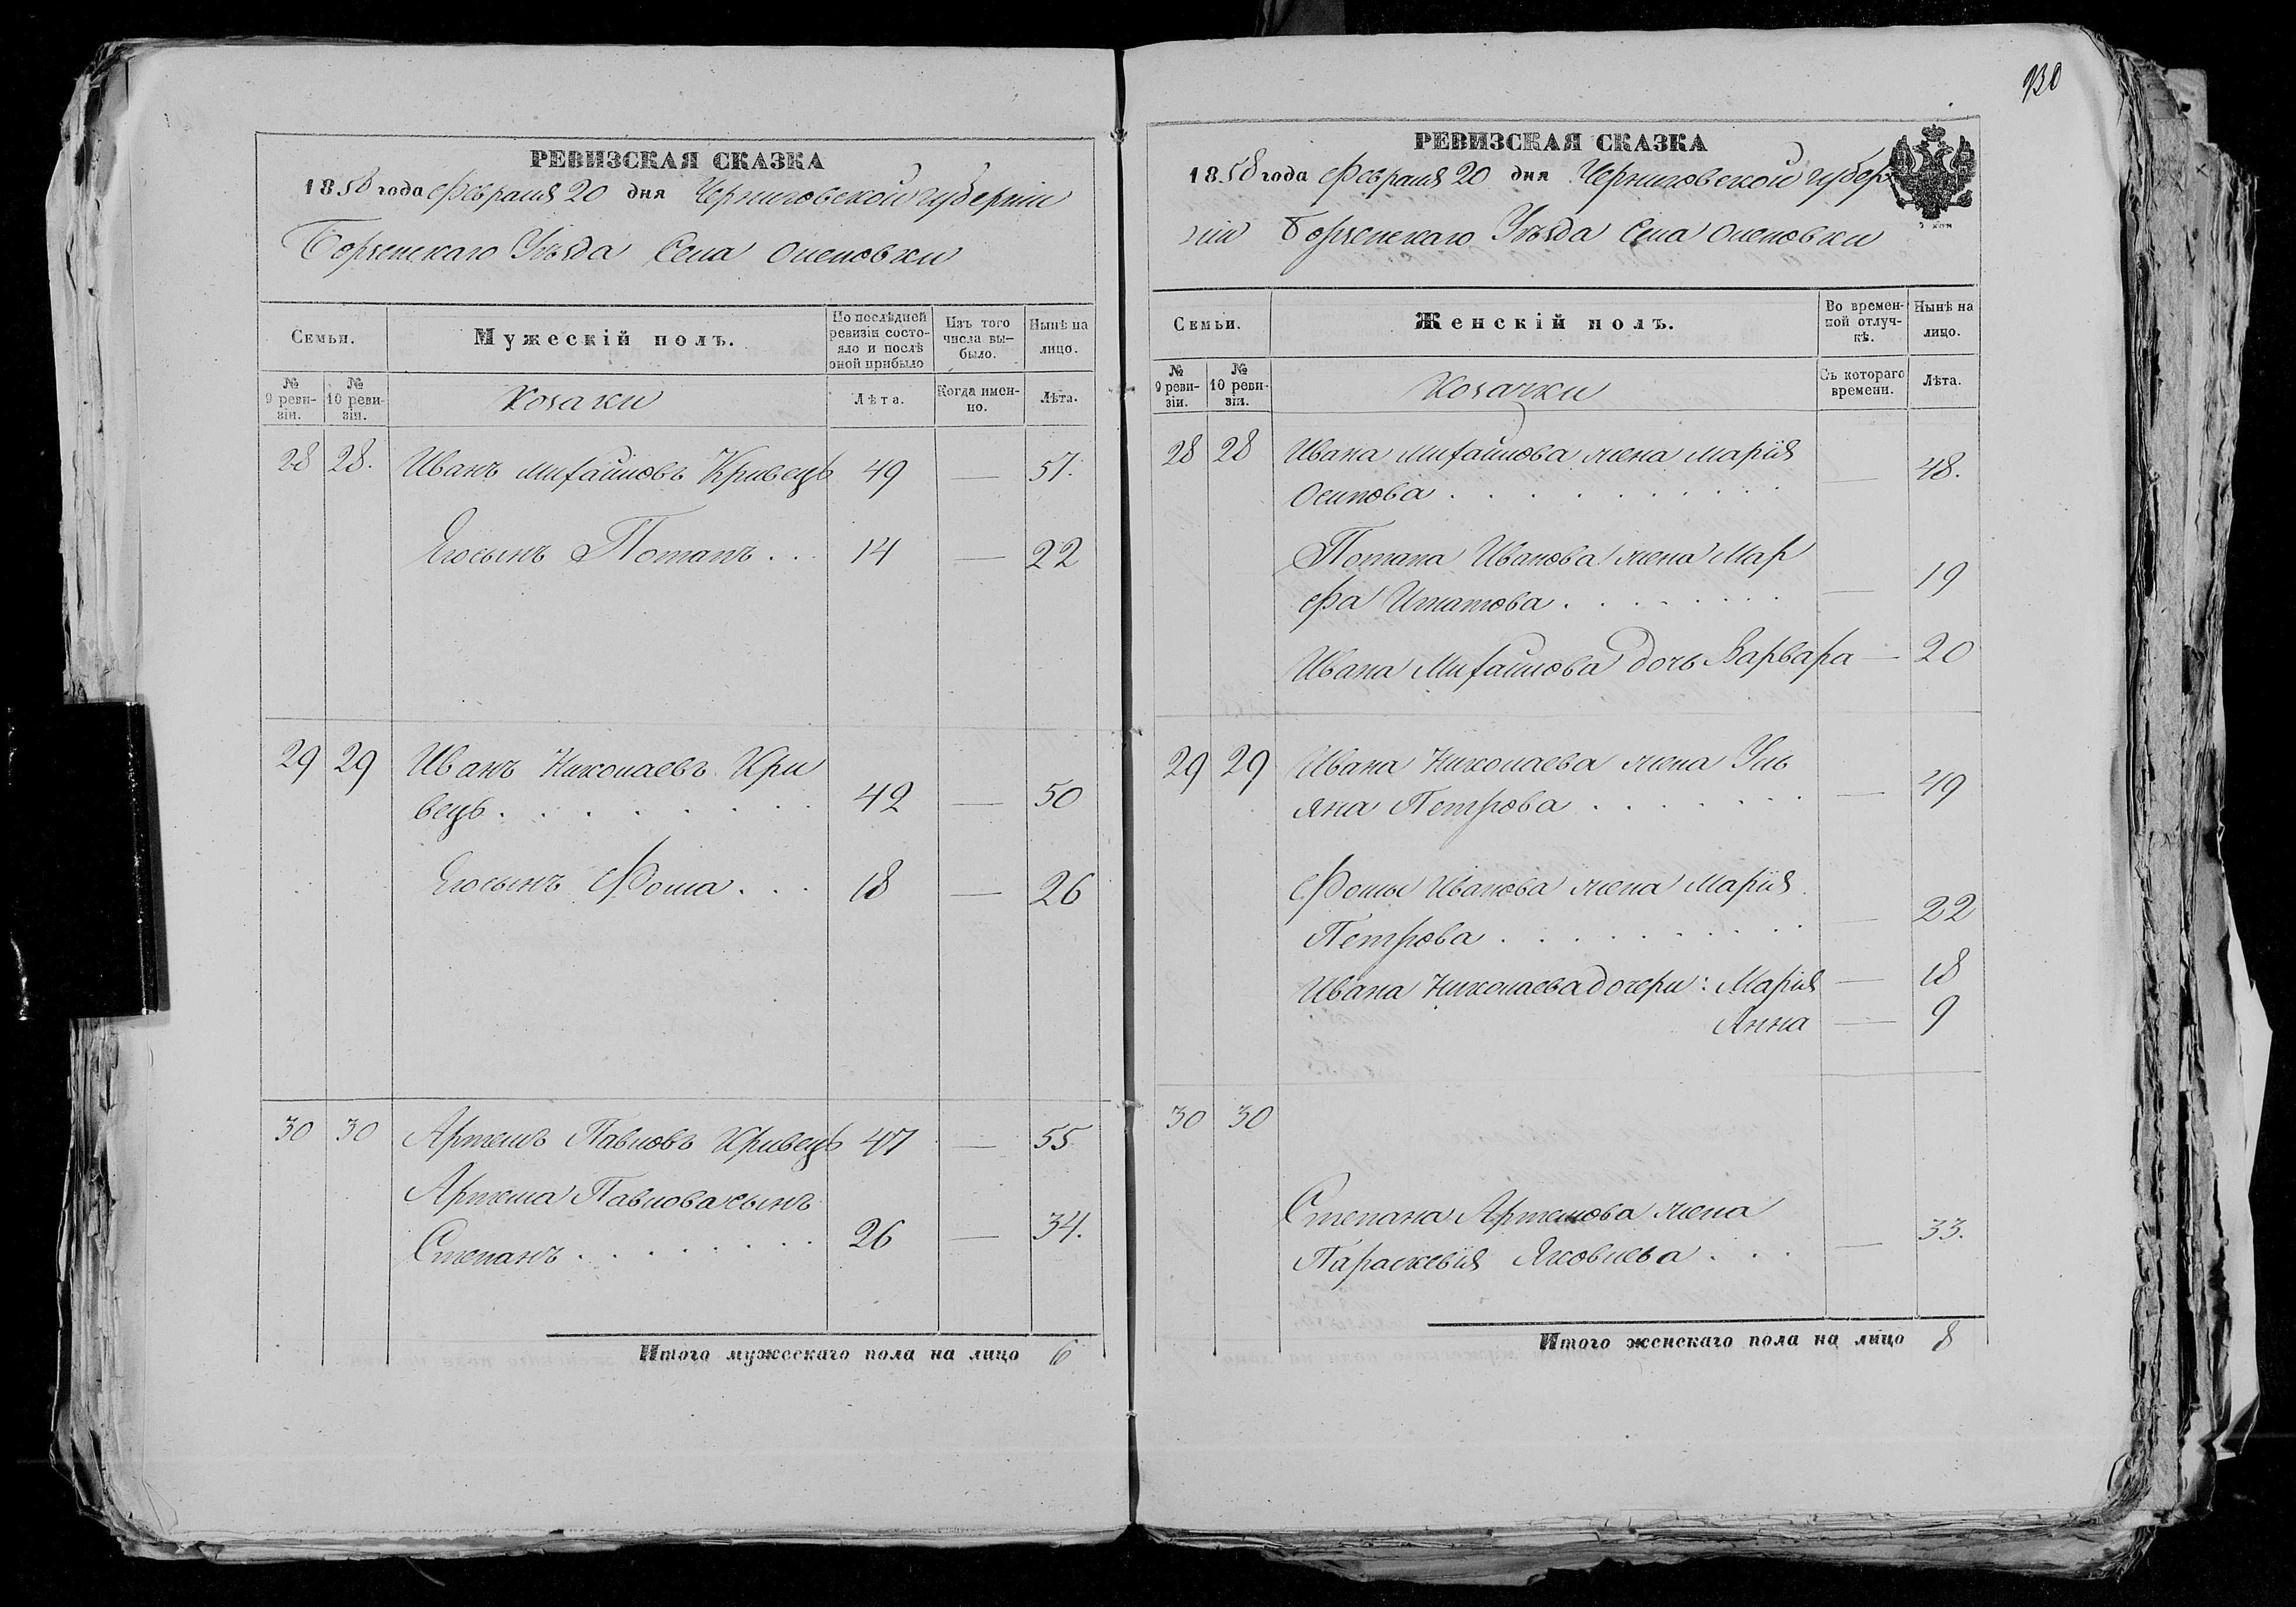 РЕВИЗСКАЯ СКАЗКА
1858 года Февраля 20 дня Черниговской губерніи
Борзенскаго Уѣзда Села Оленовки
Семьи.
Мужескій полъ.
По послѣдней
ревизіи состо-
яло и послѣ
оной прибыло
Изъ того
числа вы-
было.
Нынѣ на
лицо.
№
9 реви-
зіи.
№
10 реви-
зіи.
Козаки
Лѣта.
Когда имен-
но.
Лѣта.
28 28. Иванъ Михайловъ Кривець 49 — 57.
Егосынъ Потапъ . . . 14 — 22
29 29 Иванъ Николаевъ Кри
вець . . . . . . . . . 42 — 50
Егосынъ Фома . . . 18 — 26
30 30 Артемъ Павловъ Кривець 47 — 55
Артема Павлова сынъ
Степанъ . . . . . . . . 26 — 34.
Итого мужескаго пола на лицо 6
130
РЕВИЗСКАЯ СКАЗКА
1858 года Февраля 20 дня Черниговской губер
ніи Борзенскаго Уѣзда Села Оленовки
Семьи.
Женскій полъ.
Во времен-
ной отлуч-
кѣ.
Нынѣ на
лицо.
№
9 реви-
зіи.
№
10 реви-
зіи.
Козачки
Съ котораго
времени.
Лѣта.
28 28 Ивана Михайлова жена Марія
Осипова . . . . . . . . . . — 48.
Потапа Иванова жена Мар
фа Игнатова . . . . . . . — 19
Ивана Михайлова дочь Варвара — 20
29 29 Ивана Николаева жена Уль
яна Петрова . . . . . . . — 49
Фомы Иванова жена Марія
Петрова . . . . . . . . . — 22
Ивана Николаева дочери: Марія — 18
Анна — 9
30 30
Степана Артемова жена
Параскевія Яковлева . . . — 33.
Итого женскаго пола на лицо 8